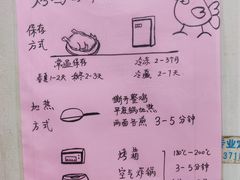 保存
方式
常温保存
冷冻 2-37日
春夏1-2天 秋冬2-3天
冷藏 2-7天
加热
方式
撕开整鸡
平底锅加热
两面各煎 3-5分钟
烤箱 180℃-200℃
空气炸锅 3-5分钟